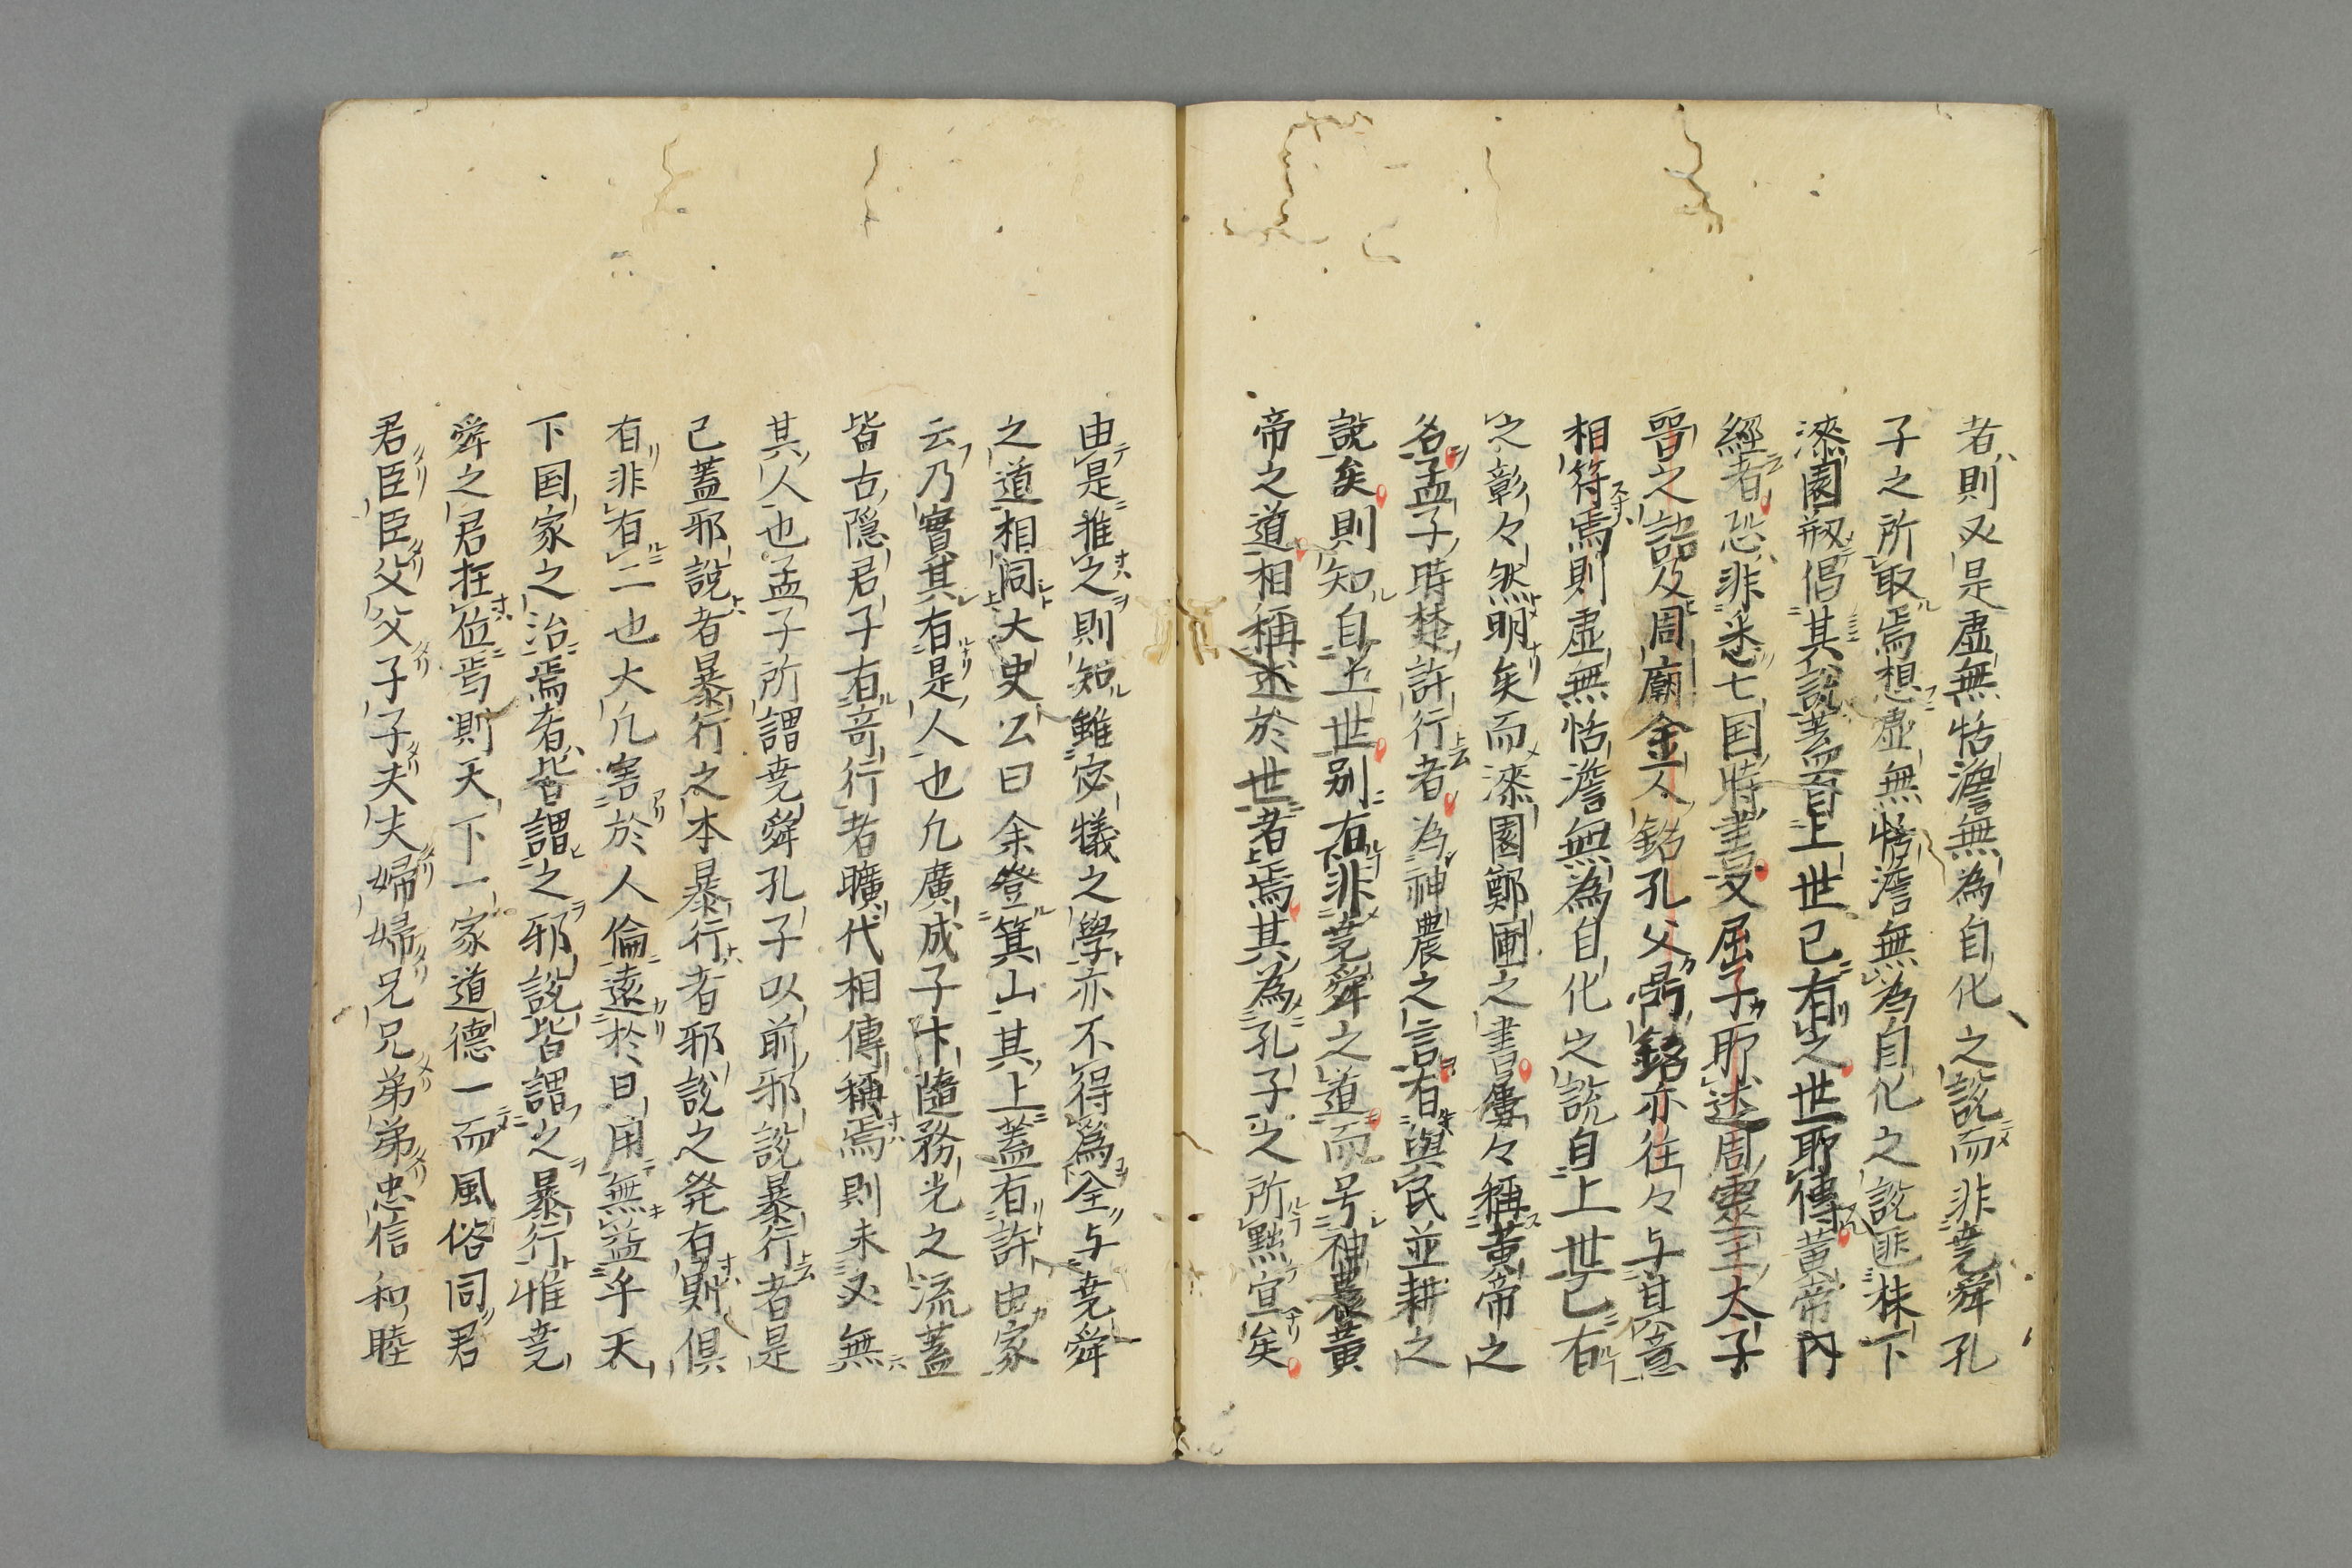 者則又是虚無恬澹無為自化之説而非堯舜孔
子之所取焉想虚無恬澹無為自化之説匪株下
漆園剏倡其説蓋自上世已有之世耶傳黄帝内
經者恐非悉七国時書又屈子耶述周霊王太子
晋之語及周廟金人銘孔父鼎銘亦往々与其意
相符焉則虚無恬澹無為自化之説自上世已有
之彰々然明矣而漆園鄭圃之書屢々稱黄帝之
名孟子時楚許行者為神農之言有與民並耕之
説矣則知自上世别有非堯舜之道而号神農黄
帝之道相稱述於世者焉其為孔子之所黜宣矣
由是推之則知雖宓犠之學亦不得為全与堯舜
之道相同大史公曰余登箕山其上蓋有許由家
云乃實其有是人也凡廣成子卞隨務光之流蓋
皆古隠君子有竒行者曠代相傳稱焉則未必無
其人也孟子所謂堯舜孔子以前邪説暴行者是
已蓋邪説者暴行之本暴行者邪説之発有則倶
有非有二也大凡害於人倫遠於日用無益乎天
下国家之治焉者皆謂之邪説皆謂之暴行惟堯
舜之君在位焉則天下一家道德一而風俗同君
君臣臣父父子子夫夫婦婦兄兄弟弟忠信和睦